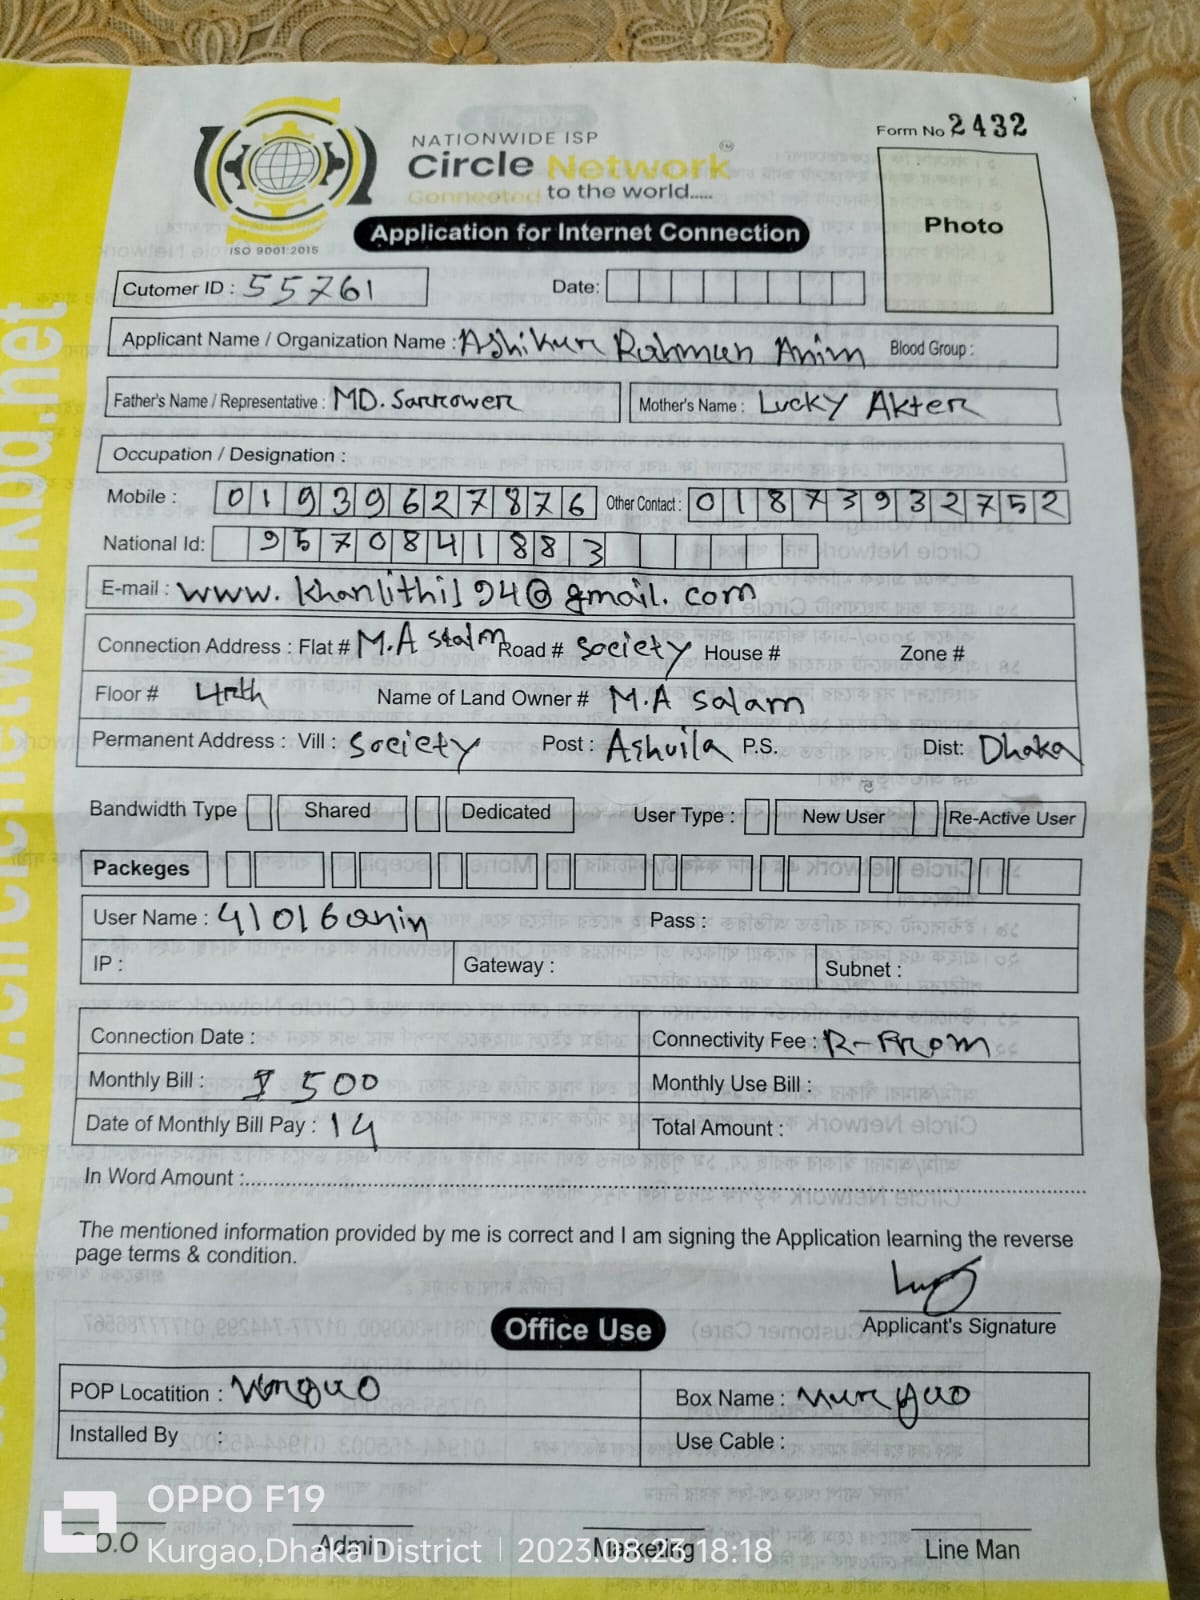 NATIONWIDE ISP
Circle Network TM
Connected to the world.....
ISO 9001:2015
Form No 2432
Photo
Application for Internet Connection
Cutomer ID : 55761 Date:
Applicant Name / Organization Name : Ashikur Rahman Anim Blood Group :
Father's Name / Representative : MD. Sarrower Mother's Name : Lucky Akter
Occupation / Designation :
Mobile : 01939627876 Other Contact : 01873932752
National Id: 9570841883
E-mail : www.khanlithi194@gmail.com
Connection Address : Flat # M.A Salam Road # Society House # Zone #
Floor # 4rth Name of Land Owner # M.A Salam
Permanent Address : Vill : Society Post : Ashuila P.S. Dist: Dhaka
Bandwidth Type Shared Dedicated User Type : New User Re-Active User
Packeges
User Name : 41016anin Pass :
IP : Gateway : Subnet :
Connection Date : Connectivity Fee : R-From
Monthly Bill : 500 Monthly Use Bill :
Date of Monthly Bill Pay : 14 Total Amount :
In Word Amount :
The mentioned information provided by me is correct and I am signing the Application learning the reverse
page terms & condition.
Applicant's Signature
Office Use
POP Locatition : Box Name :
Installed By : Use Cable :
C.O.O Admin Marketing Line Man
OPPO F19
Kurgao,Dhaka District | 2023.08.23 18:18